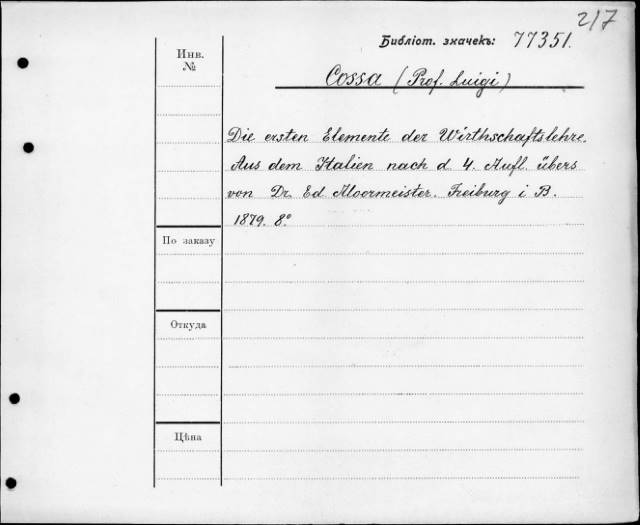 217
Библіот. значекъ: 77351.
Инв.
№
Cossa (Prof. Luigi)
Die ersten Elemente der Wirthschaftslehre.
Aus dem Italien nach d. 4. Aufl. übers
von Dr. Ed Moormeister. Freiburg i B.
1879. 8°
По заказу
Откуда
Цѣна